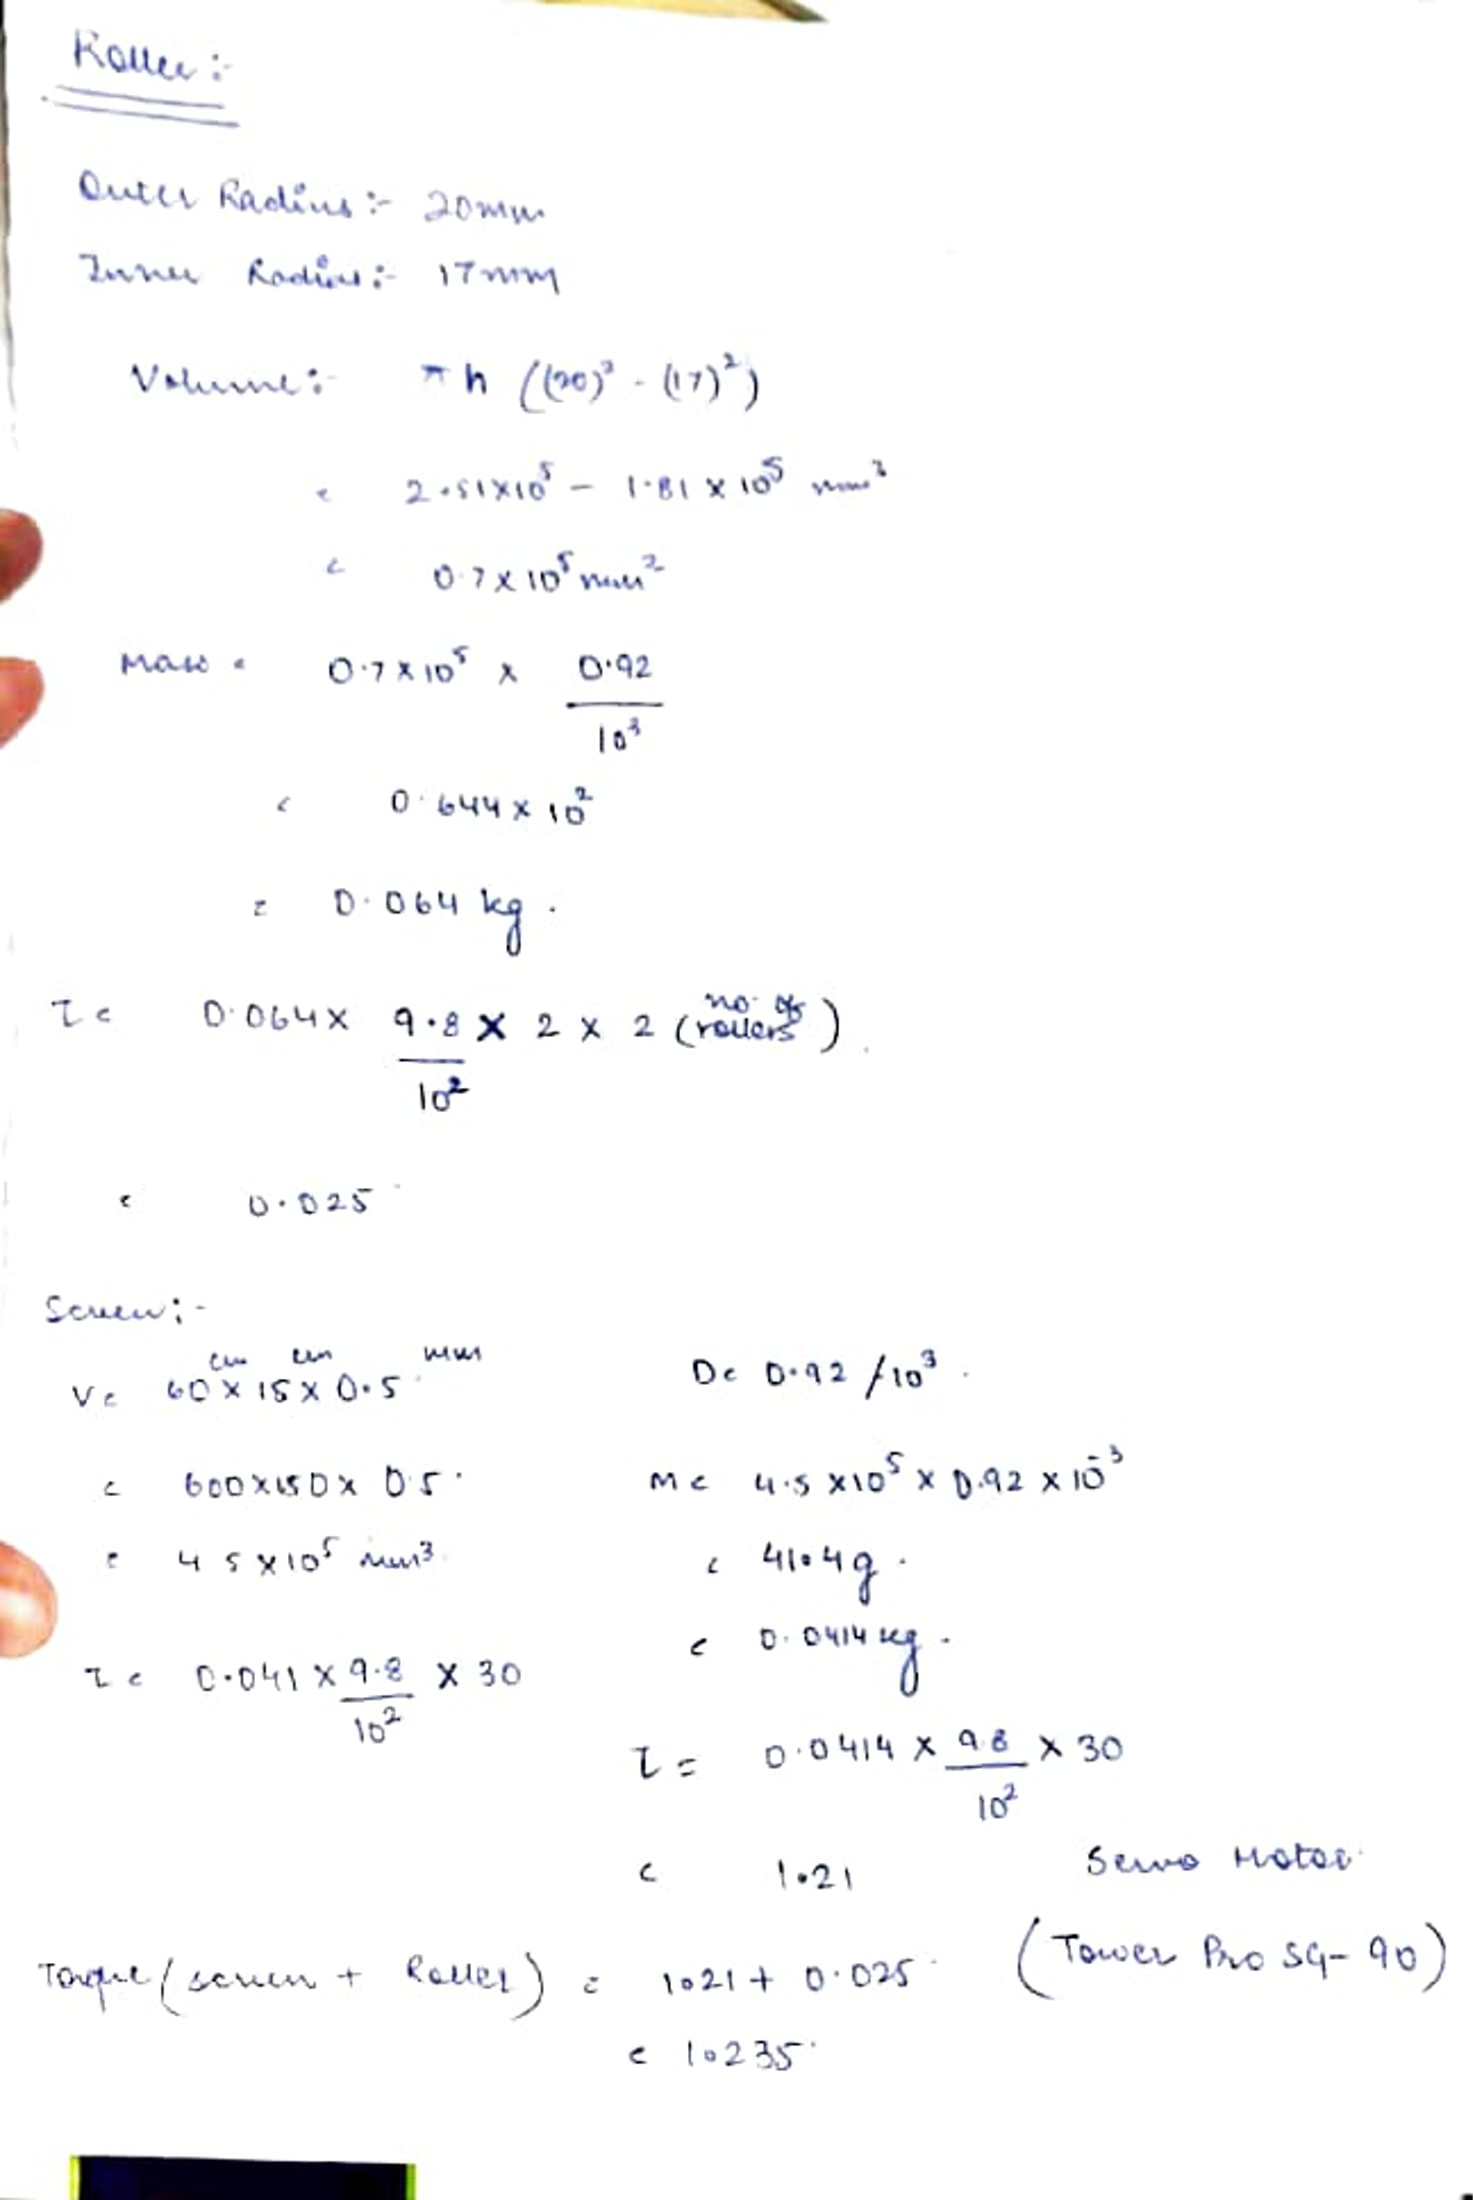 Roller :-
Outer Radius :- 20mm
Inner Radius :- 17mm
Volume :- πh ((20)² - (17)²)
= 2.51x10⁵ - 1.81 x 10⁵ mm³
= 0.7 x 10⁵ mm²
Mass = 0.7 x 10⁵ x 0.92 / 10³
= 0.644 x 10²
= 0.064 kg.
τ = 0.064 x 9.8 / 10² x 2 x 2 (no. of rollers)
= 0.025
Screen :-
V = 60 cm x 15 cm x 0.5 mm
= 600 x 150 x 0.5
= 4 5 x 10⁵ mm³
τ = 0.041 x 9.8 / 10² x 30
D = 0.92 / 10³.
M = 4.5 x 10⁵ x 0.92 x 10⁻³
= 41.4g.
= 0.0414 kg.
τ = 0.0414 x 9.8 / 10² x 30
= 1.21
Servo Motor
(Tower Pro SG-90)
Torque (screen + Roller) = 1.21 + 0.025
= 1.235